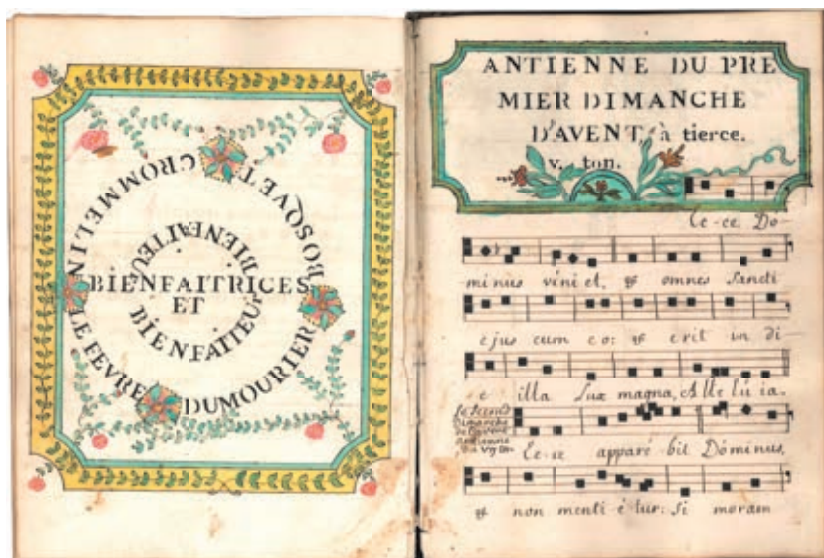 CROMMELIN
BOSQUET
DUMOURIER
LEFEVRE
BIENFAITEUR
BIENFAITRICES
ET
BIENFATTEUR
ANTIENNE DU PRE
MIER DIMANCHE
D'AVENT, à tierce.
v. ton.
Ec-ce Do-
minus véniet, & omnes Sancti
ejus cum eo: & erit in di
e illa Lux magna, Alle lú ia.
le Second
Dimanche
de l'avent
antienne
du vij ton
Ec-ce apparé-bit Dóminus,
& non menti é-tur: si moram